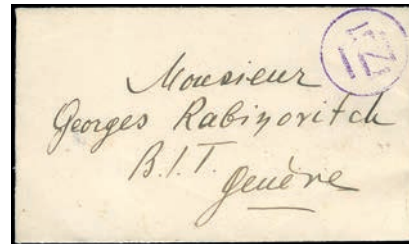 Monsieur
Georges Rabinovitch
B.I.T.
Genève